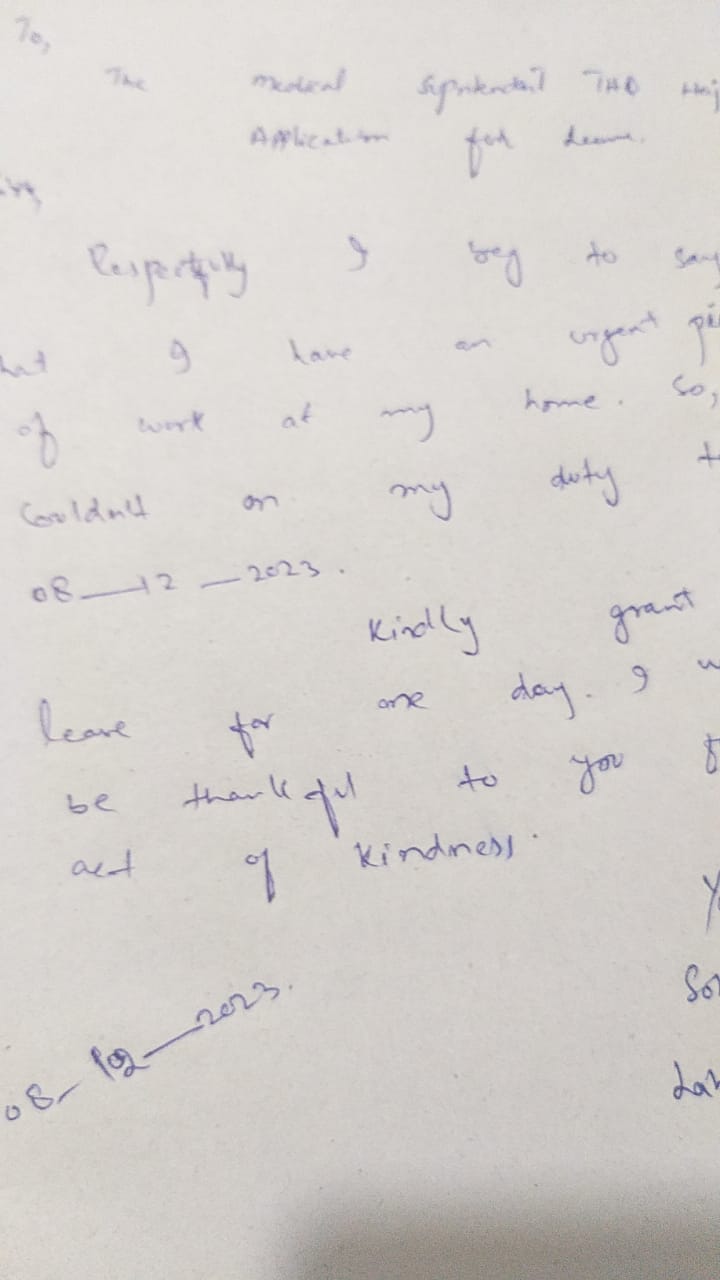 To,
The Medical THQ
Application for Leave.
Respectfully I beg to say
I have an urgent
of work at my home. So,
Couldn't on my duty
08-12-2023.
Kindly grant
leave for one day. I
be thankful to you
act of kindness.
08-12-2023.